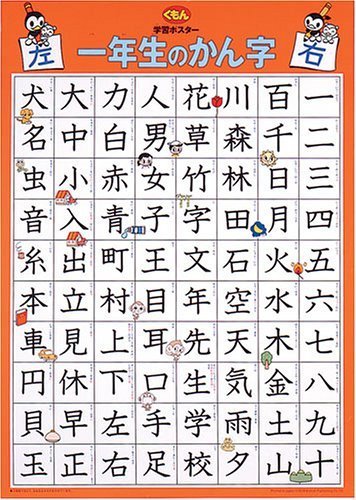 くもん
学習ポスター
一年生のかん字
右
左
一二三四五六七八九十
百千日月火水木金土山
川森林田石空天気雨夕
花草竹字文年先生学校
人男女子王目耳口手足
力白赤青町村上下左右
大中小入出立見休早正
犬名虫音糸本車円貝玉